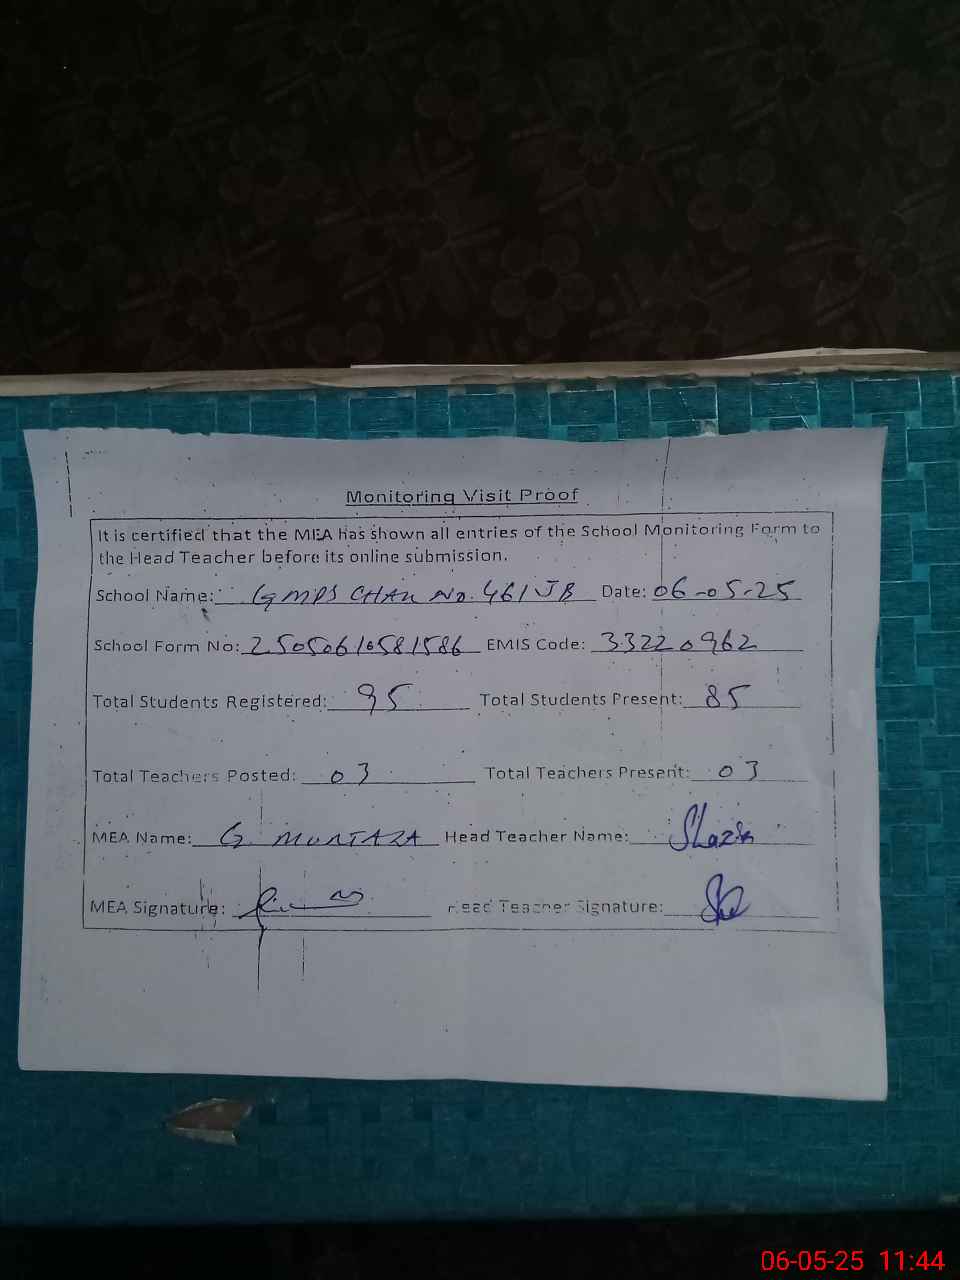 Monitoring Visit Proof
It is certified that the MEA has shown all entries of the School Monitoring Form to
the Head Teacher before its online submission.
School Name: GMPS CHAK No. 461 JB Date: 06-05-25
School Form No: 2505061058 1586 EMIS Code: 33220962
Total Students Registered: 95 Total Students Present: 85
Total Teachers Posted: 03 Total Teachers Present: 03
MEA Name: G. MURTAZA Head Teacher Name: Shazia
MEA Signature: Head Teacher Signature:
06-05-25 11:44